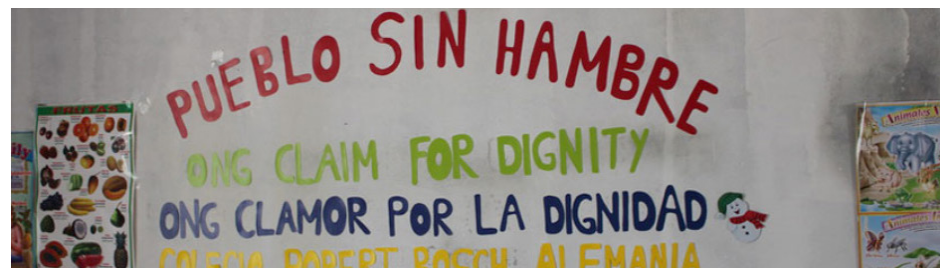 PUEBLO SIN HAMBRE
ONG CLAIM FOR DIGNITY
ONG CLAMOR POR LA DIGNIDAD
COLEGIO ROBERT BOSCH ALEMANIA
FRUTAS
Animales